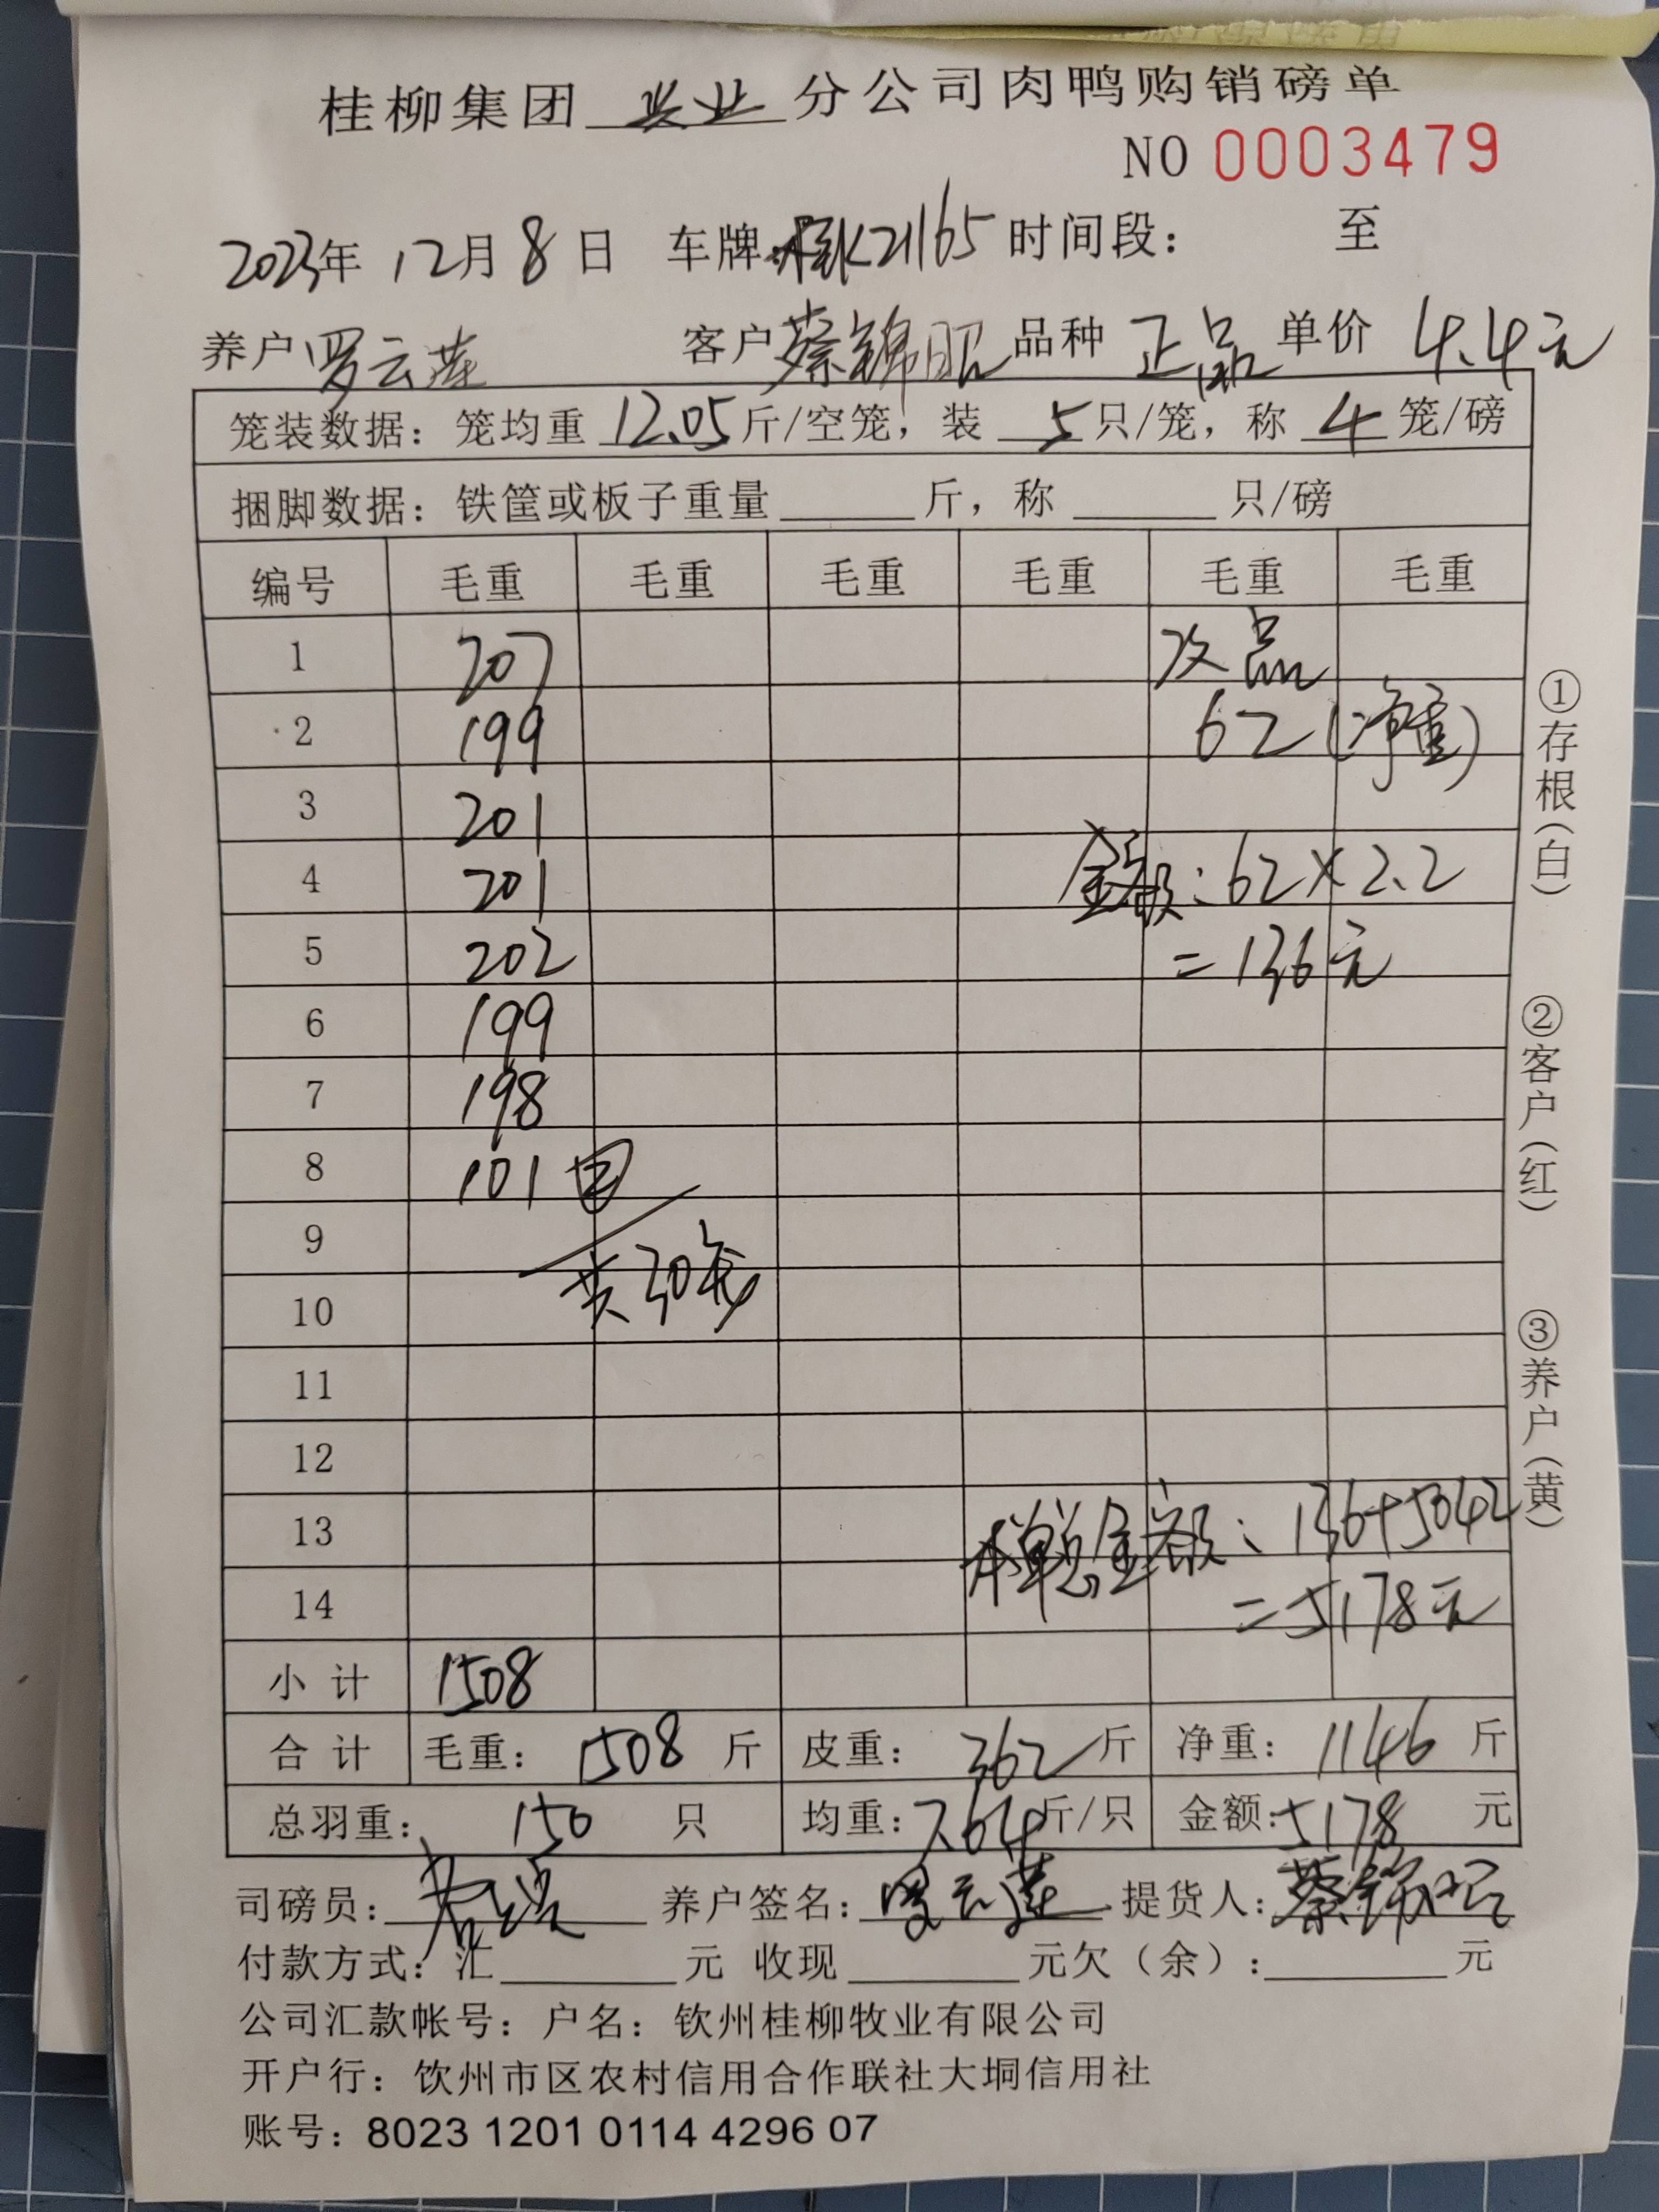 桂柳集团 兴业 分公司肉鸭购销磅单
NO 0003479
2023年 12月 8日 车牌: 桂K21165 时间段: 至
养户 罗云莲 客户 蔡锦昭 品种 正品 单价 4.4元
笼装数据: 笼均重 12.05 斤/空笼, 装 5 只/笼, 称 4 笼/磅
捆脚数据: 铁筐或板子重量 斤, 称 只/磅
编号 毛重 毛重 毛重 毛重 毛重 毛重
1 207 次品
2 199 62 (净重)
3 201
4 201 金额: 62×2.2
5 202 =136元
6 199
7 198
8 101
9
共30笼
10
11
12
13 本单总金额: 136+5042
14 =5178元
小计 1508
合计 毛重: 1508 斤 皮重: 362 斤 净重: 1146 斤
总羽重: 150 只 均重: 7.64 斤/只 金额: 5178 元
司磅员: 养户签名: 罗云莲 提货人: 蔡锦昭
付款方式: 汇 元 收现 元欠(余): 元
公司汇款帐号: 户名: 钦州桂柳牧业有限公司
开户行: 钦州市区农村信用合作联社大垌信用社
账号: 8023 1201 0114 4296 07
①存根(白)
②客户(红)
③养户(黄)